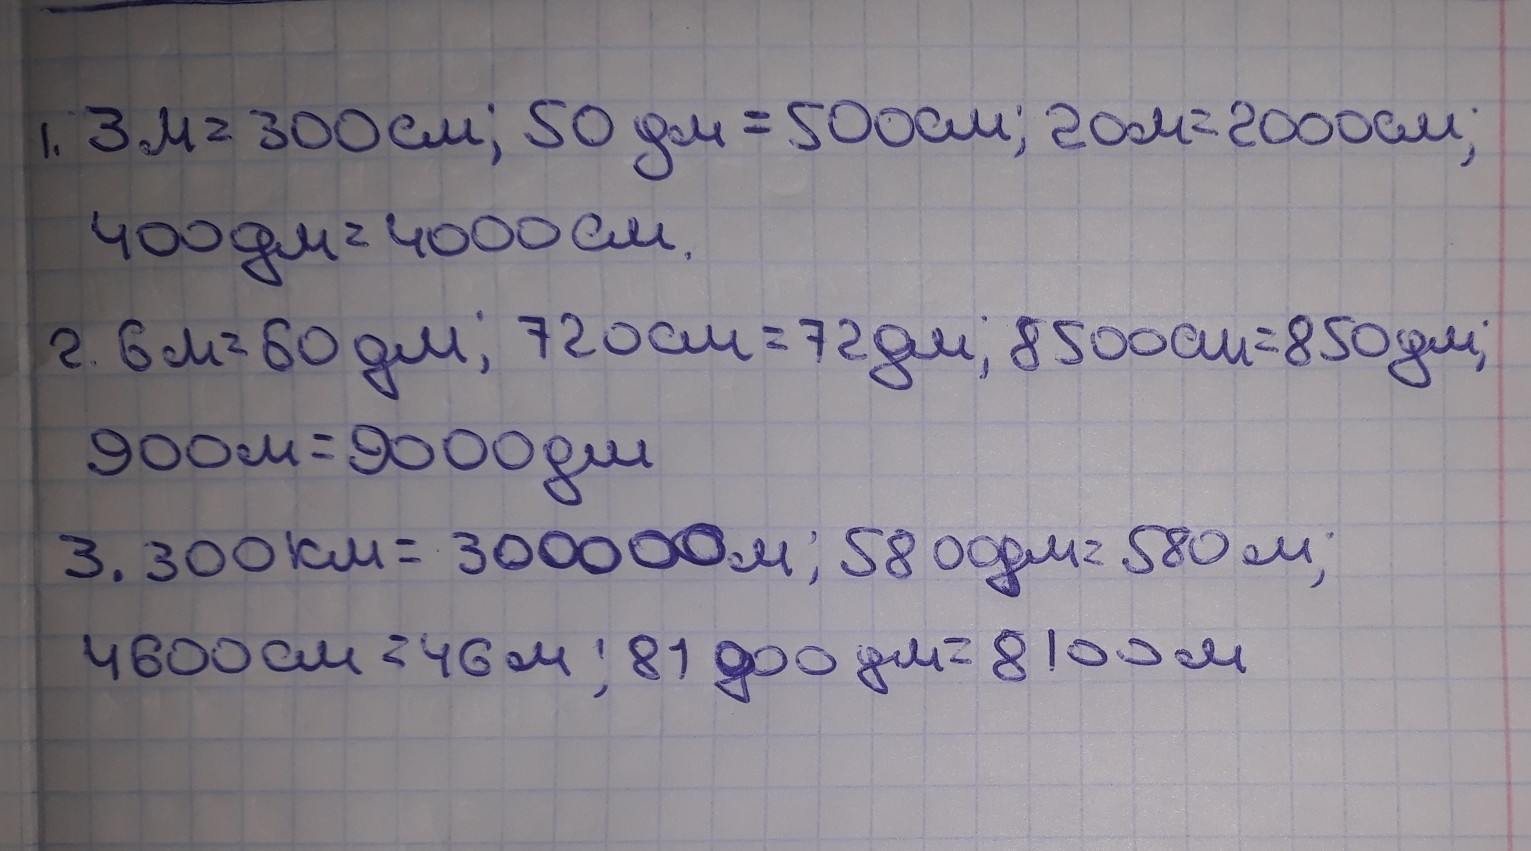 1. 3м=300см; 50 дм=500см; 20м=2000см;
400дм=4000см.
2. 6м=60дм; 720см=72дм; 8500см=850дм;
900м=9000дм
3. 300км= 300000м; 5800дм=580м;
4600см=46м; 81 000дм=8100м